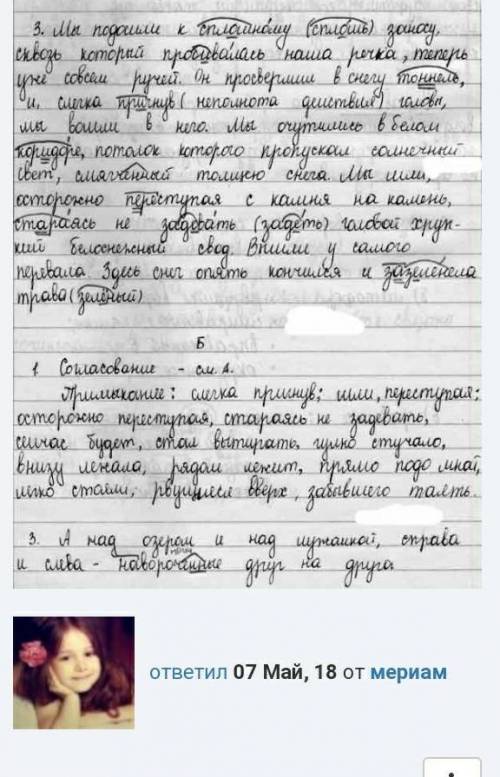 3. Мы подошли к сплошному (сплошь) заносу,
сквозь который пробивалась наша речка, теперь
уже совсем ручей. Он просверлил в снегу тоннель,
и, слегка пригнув (неполнота действия) головы,
мы вошли в него. Мы очутились в белом
коридоре, потолок которого пропускал солнечный
свет, смягчённый толщею снега. Мы шли,
осторожно переступая с камня на камень,
стараясь не задевать (задеть) головой хруп-
кий белоснежный свод. Вышли у самого
перевала. Здесь снег опять кончился и зазеленела
трава (зелёный)
Б
1 Согласование - см. А.
Примыкание: слегка пригнув; шли, переступая;
осторожно переступая, стараясь не задевать,
сейчас будет, стал вытирать, гулко стучало,
внизу лежала, рядом лежит, прямо подо мной,
легко стояли, рвущиеся вверх, забывшего таять.
3. А над озером и над лужайкой, справа
и слева - навороченные друг на друга
ответил 07 Май, 18 от мериам